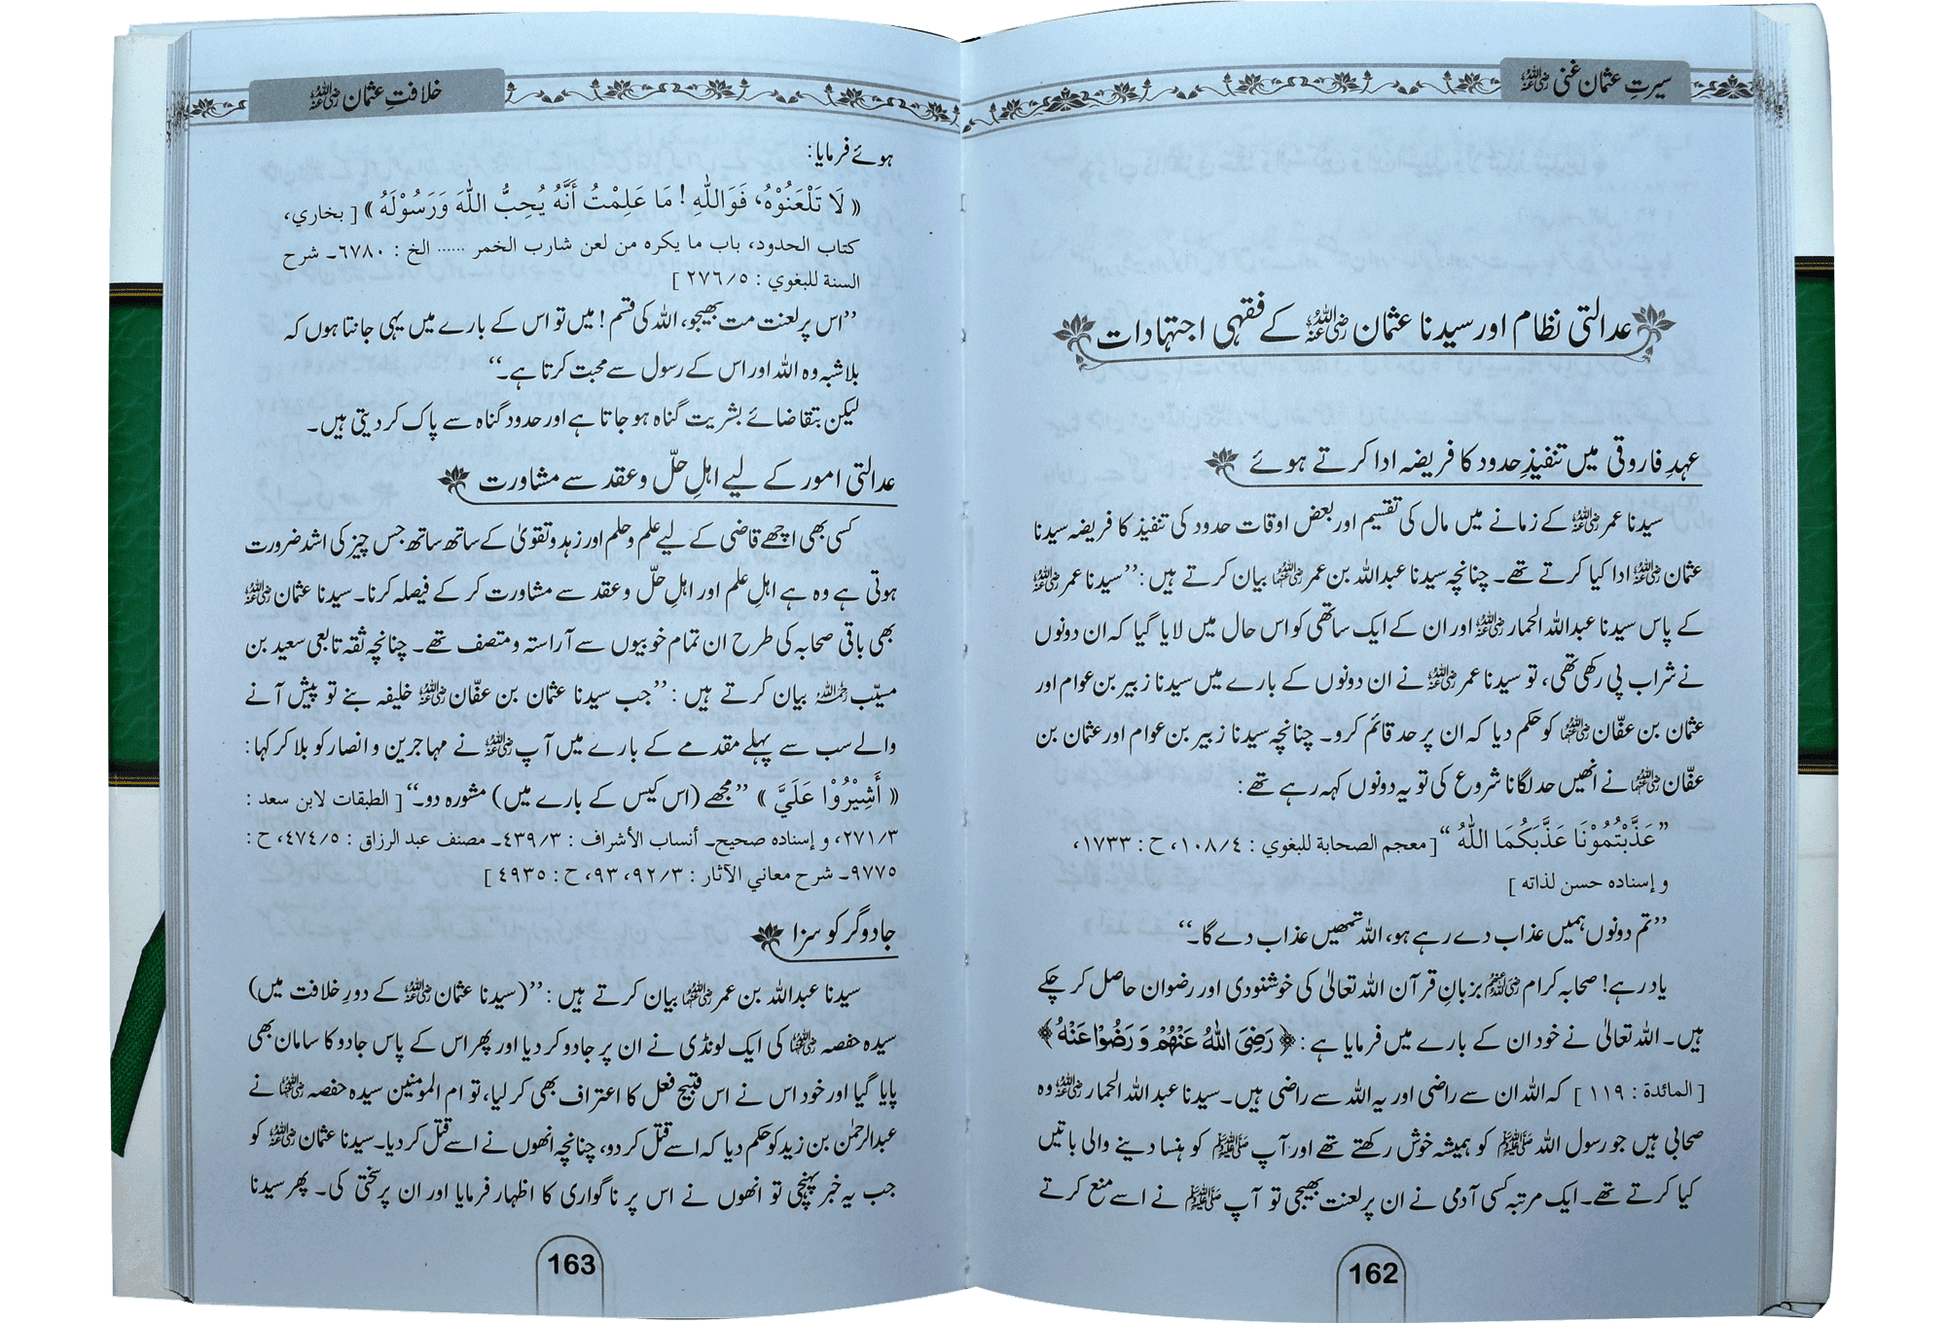 سیرتِ عثمان غنی رضی اللہ عنہ
عدالتی نظام اور سیدنا عثمان رضی اللہ عنہ کے فقہی اجتہادات
عہدِ فاروقی میں تنفیذِ حدود کا فریضہ ادا کرتے ہوئے
سیدنا عمر رضی اللہ عنہ کے زمانے میں مال کی تقسیم اور بعض اوقات حدود کی تنفیذ کا فریضہ سیدنا
عثمان رضی اللہ عنہ ادا کیا کرتے تھے۔ چنانچہ سیدنا عبداللہ بن عمر رضی اللہ عنہما بیان کرتے ہیں: ”سیدنا عمر رضی اللہ عنہ
کے پاس سیدنا عبداللہ الحمار رضی اللہ عنہ اور ان کے ایک ساتھی کو اس حال میں لایا گیا کہ ان دونوں
نے شراب پی رکھی تھی، تو سیدنا عمر رضی اللہ عنہ نے ان دونوں کے بارے میں سیدنا زبیر بن عوام اور
عثمان بن عفّان رضی اللہ عنہما کو حکم دیا کہ ان پر حد قائم کرو۔ چنانچہ سیدنا زبیر بن عوام اور عثمان بن
عفّان رضی اللہ عنہما نے انھیں حد لگانا شروع کی تو یہ دونوں کہہ رہے تھے:
”عَذَّبْتُمُوْنَا عَذَّبَكُمَا اللّٰهُ“ [معجم الصحابة للبغوي : ١٠٨/٤، ح : ١٧٣٣،
و إسناده حسن لذاته ]
”تم دونوں ہمیں عذاب دے رہے ہو، اللہ تمھیں عذاب دے گا۔“
یاد رہے! صحابہ کرام رضی اللہ عنہم بزبانِ قرآن اللہ تعالیٰ کی خوشنودی اور رضوان حاصل کر چکے
ہیں۔ اللہ تعالیٰ نے خود ان کے بارے میں فرمایا ہے: ﴿رَضِیَ اللّٰهُ عَنْهُمْ وَ رَضُوْا عَنْهُ﴾
[ المائدة : ١١٩ ] کہ اللہ ان سے راضی اور یہ اللہ سے راضی ہیں۔ سیدنا عبداللہ الحمار رضی اللہ عنہ وہ
صحابی ہیں جو رسول اللہ ﷺ کو ہمیشہ خوش رکھتے تھے اور آپ ﷺ کو ہنسا دینے والی باتیں
کیا کرتے تھے۔ ایک مرتبہ کسی آدمی نے ان پر لعنت بھیجی تو آپ ﷺ نے اسے منع کرتے
162
خلافتِ عثمان رضی اللہ عنہ
ہوئے فرمایا:
« لَا تَلْعَنُوْهُ، فَوَاللّٰهِ ! مَا عَلِمْتُ أَنَّهُ يُحِبُّ اللّٰهَ وَرَسُوْلَهُ » [ بخاري،
كتاب الحدود، باب ما يكره من لعن شارب الخمر ...... الخ : ٦٧٨٠۔ شرح
السنة للبغوي : ٢٧٦/٥ ]
”اس پر لعنت مت بھیجو، اللہ کی قسم! میں تو اس کے بارے میں یہی جانتا ہوں کہ
بلاشبہ وہ اللہ اور اس کے رسول سے محبت کرتا ہے۔“
لیکن بتقاضائے بشریت گناہ ہو جاتا ہے اور حدود گناہ سے پاک کر دیتی ہیں۔
عدالتی امور کے لیے اہلِ حلّ و عقد سے مشاورت
کسی بھی اچھے قاضی کے لیے علم و حلم اور زہد و تقویٰ کے ساتھ ساتھ جس چیز کی اشد ضرورت
ہوتی ہے وہ ہے اہلِ علم اور اہلِ حلّ و عقد سے مشاورت کر کے فیصلہ کرنا۔ سیدنا عثمان رضی اللہ عنہ
بھی باقی صحابہ کی طرح ان تمام خوبیوں سے آراستہ و متصف تھے۔ چنانچہ ثقہ تابعی سعید بن
مسیّب رحمہ اللہ بیان کرتے ہیں: ”جب سیدنا عثمان بن عفّان رضی اللہ عنہ خلیفہ بنے تو پیش آنے
والے سب سے پہلے مقدمے کے بارے میں آپ رضی اللہ عنہ نے مہاجرین و انصار کو بلا کر کہا:
« أَشِيْرُوْا عَلَيَّ » ”مجھے (اس کیس کے بارے میں) مشورہ دو۔“ [ الطبقات لابن سعد :
٢٧١/٣، و إسناده صحيح۔ أنساب الأشراف : ٤٣٩/٣۔ مصنف عبد الرزاق : ٤٧٤/٥، ح :
٩٧٧٥۔ شرح معاني الآثار : ٩٢/٣، ٩٣، ح : ٤٩٣٥ ]
جادوگر کو سزا
سیدنا عبداللہ بن عمر رضی اللہ عنہما بیان کرتے ہیں: ”(سیدنا عثمان رضی اللہ عنہ کے دورِ خلافت میں)
سیدہ حفصہ رضی اللہ عنہا کی ایک لونڈی نے ان پر جادو کر دیا اور پھر اس کے پاس جادو کا سامان بھی
پایا گیا اور خود اس نے اس قبیح فعل کا اعتراف بھی کر لیا، تو ام المومنین سیدہ حفصہ رضی اللہ عنہا نے
عبدالرحمٰن بن زید کو حکم دیا کہ اسے قتل کر دو، چنانچہ انھوں نے اسے قتل کر دیا۔ سیدنا عثمان رضی اللہ عنہ کو
جب یہ خبر پہنچی تو انھوں نے اس پر ناگواری کا اظہار فرمایا اور ان پر سختی کی۔ پھر سیدنا
163